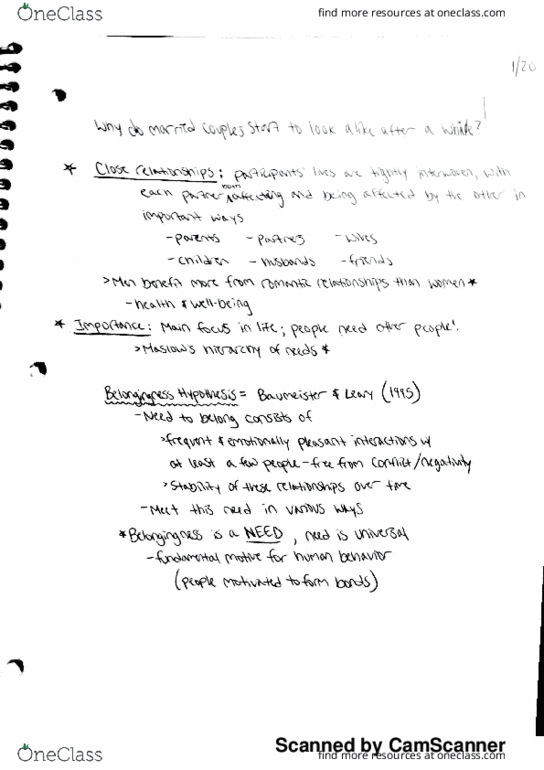 OneClass
find more resources at oneclass.com
1/20
Why do married couples start to look alike after a while?
* Close relationships: participants' lives are tightly interwoven, with
each partner affecting and being affected by the other in
important ways
- parents - partners - wives
- children - husbands - friends
> Men benefit more from romantic relationships than women *
- health & well-being
* Importance: Main focus in life; people need other people!
> Maslow's hierarchy of needs *
Belongingness Hypothesis = Baumeister & Leary (1995)
- Need to belong consists of
> frequent & emotionally pleasant interactions w/
at least a few people - free from conflict/negativity
> Stability of these relationships over time
- Meet this need in various ways
* Belongingness is a NEED, need is universal
- fundamental motive for human behavior
(people motivated to form bonds)
Scanned by CamScanner
OneClass
find more resources at oneclass.com